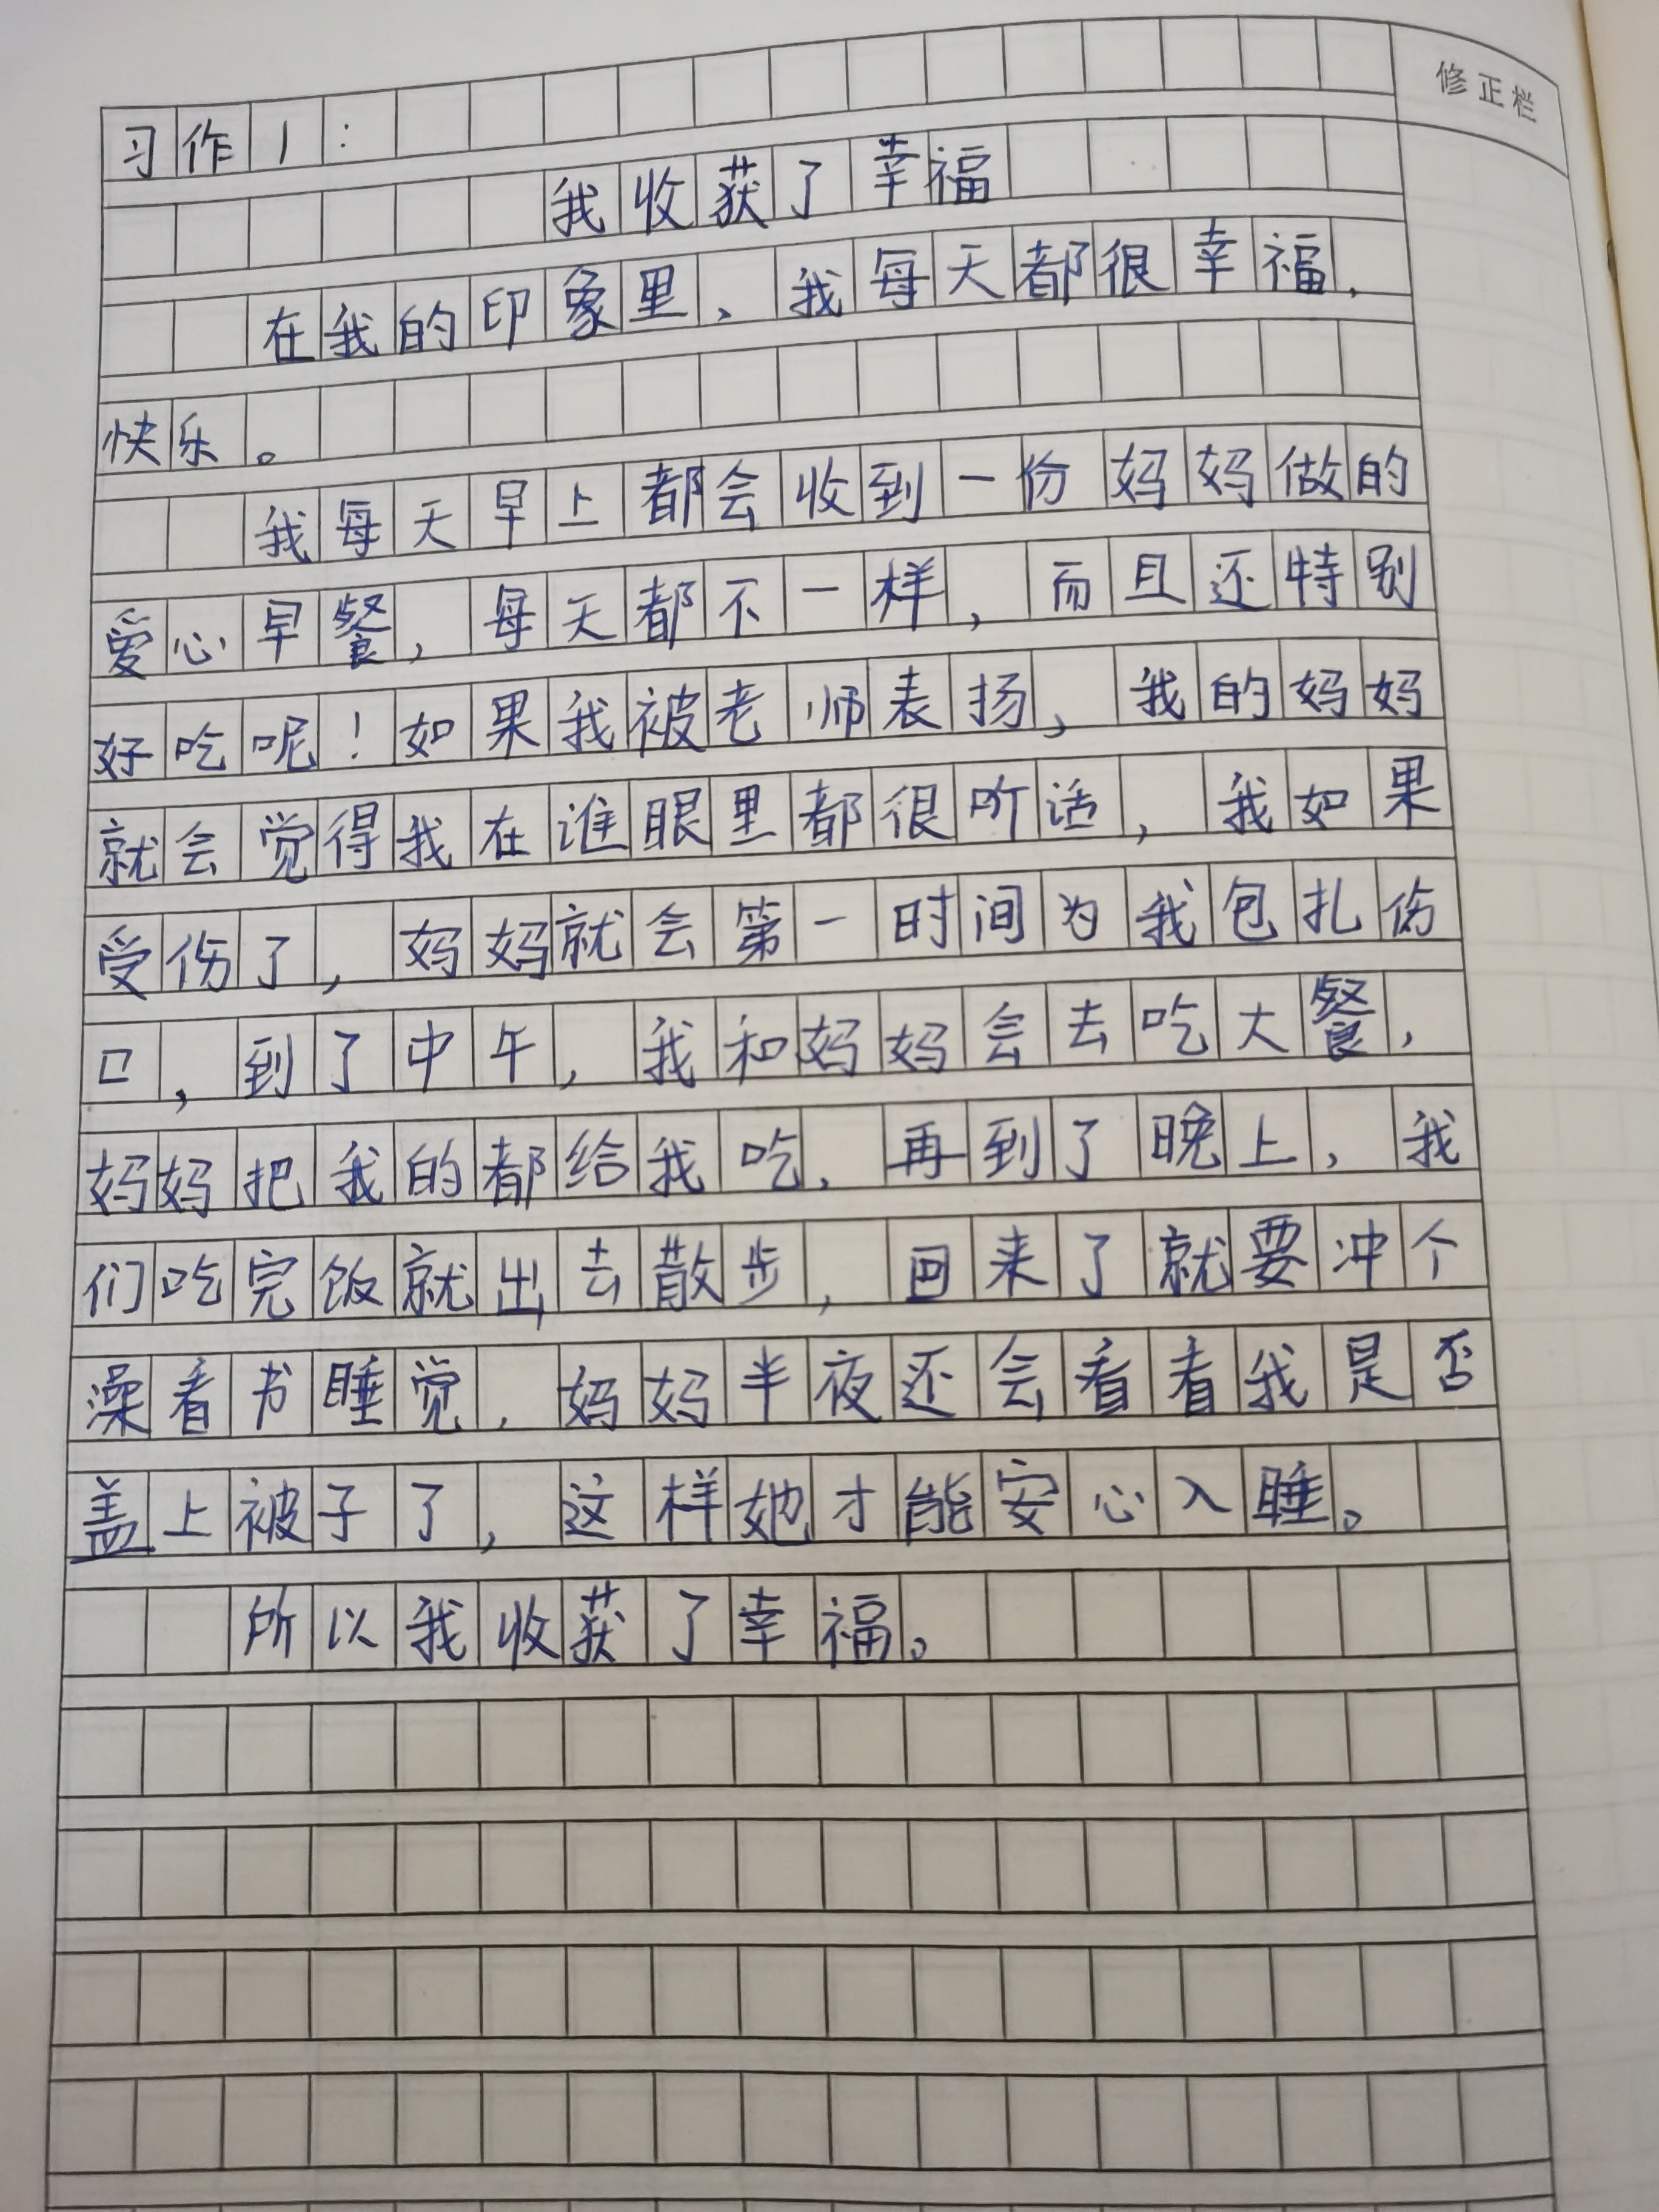 修正栏
习作1：
我收获了幸福
在我的印象里、我每天都很幸福、
快乐。
我每天早上都会收到一份妈妈做的
爱心早餐，每天都不一样，而且还特别
好吃呢！如果我被老师表扬，我的妈妈
就会觉得我在谁眼里都很听话，我如果
受伤了，妈妈就会第一时间为我包扎伤
口，到了中午，我和妈妈会去吃大餐，
妈妈把我的都给我吃、再到了晚上，我
们吃完饭就出去散步，回来了就要冲个
澡看书睡觉、妈妈半夜还会看看我是否
盖上被子了，这样她才能安心入睡。
所以我收获了幸福。